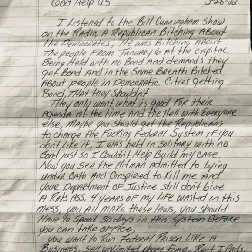 God Help US
I Listened to the Bill Cunningham Show
on the Radio, A Republican Bitching About
The Democrates, He was Bitching About
The people From Januay 6 at the capital
Being Held with no Bond And demands they
get Bond and in the Same Breath Bitched
About people in Democratic Cities getting
Bond, That they Shouldnt
They only want what is good for their
Agenda at the time and the Hell with everyone
else, Maybe you should get the Republicans
to change the Fucking Federal System if you
dont like it, I was held in Solitary with no
Bond just so I Couldnt Help Build my Case,
Now you See the Hitman Admitted to lying
under Oath And Conspired to Kill me and
your Department of Justice still dont give
A Rats Ass, 4 years of my Life wasted in this
mess, you All made these Laws, you Should
Have to Spend 30 days in the System Before
you can take office,
you want to Run Federal Prison Like a
Business, Set unlimited